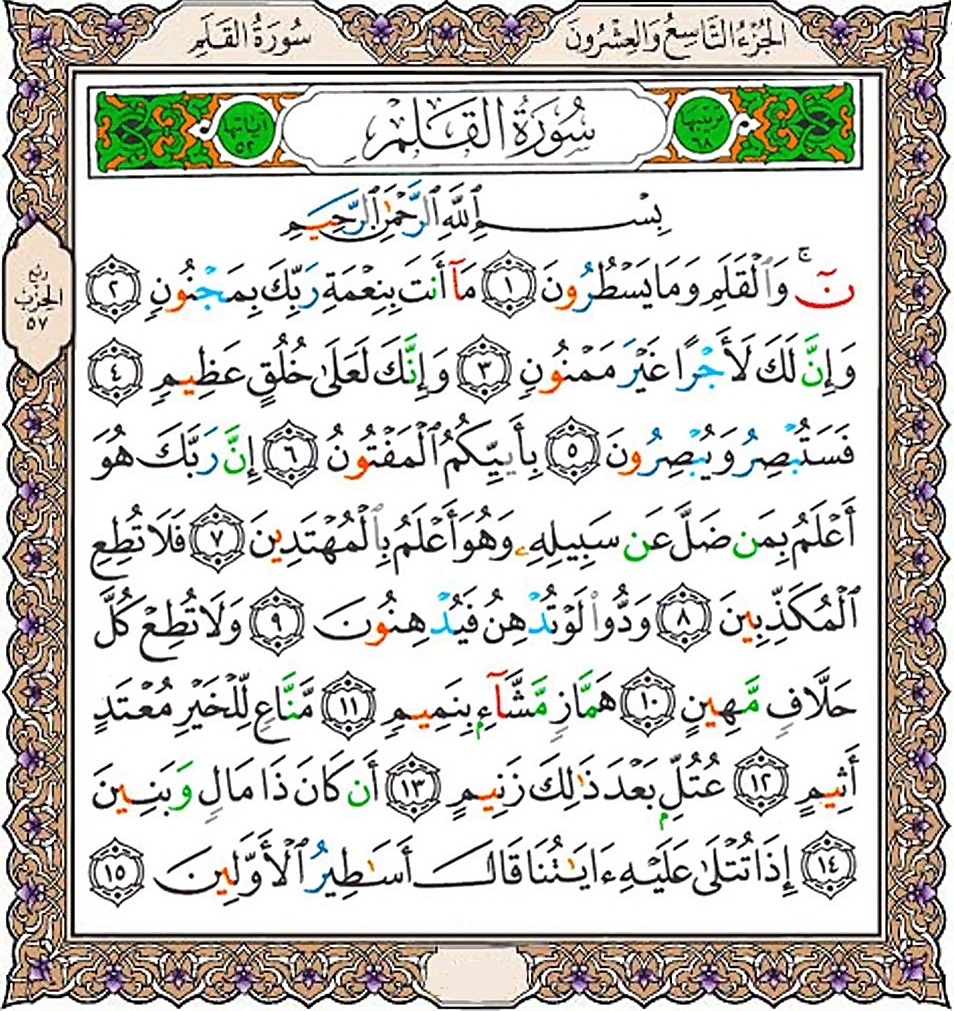 الجُزْءُ التَّاسِعُ وَالعِشْرُونَ
سُورَةُ القَلَمِ
ترتيبها ٦٨
سُورَةُ القَلَمِ
آياتها ٥٢
بِسْمِ ٱللَّهِ ٱلرَّحْمَٰنِ ٱلرَّحِيمِ
نٓ ۚ وَٱلْقَلَمِ وَمَا يَسْطُرُونَ ١ مَآ أَنتَ بِنِعْمَةِ رَبِّكَ بِمَجْنُونٍ ٢
وَإِنَّ لَكَ لَأَجْرًا غَيْرَ مَمْنُونٍ ٣ وَإِنَّكَ لَعَلَىٰ خُلُقٍ عَظِيمٍ ٤
فَسَتُبْصِرُ وَيُبْصِرُونَ ٥ بِأَييِّكُمُ ٱلْمَفْتُونُ ٦ إِنَّ رَبَّكَ هُوَ
أَعْلَمُ بِمَن ضَلَّ عَن سَبِيلِهِۦ وَهُوَ أَعْلَمُ بِٱلْمُهْتَدِينَ ٧ فَلَا تُطِعِ
ٱلْمُكَذِّبِينَ ٨ وَدُّوا۟ لَوْ تُدْهِنُ فَيُدْهِنُونَ ٩ وَلَا تُطِعْ كُلَّ
حَلَّافٍ مَّهِينٍ ١٠ هَمَّازٍ مَّشَّآءٍۭ بِنَمِيمٍ ١١ مَّنَّاعٍ لِّلْخَيْرِ مُعْتَدٍ
أَثِيمٍ ١٢ عُتُلٍّۭ بَعْدَ ذَٰلِكَ زَنِيمٍ ١٣ أَن كَانَ ذَا مَالٍ وَبَنِينَ
١٤ إِذَا تُتْلَىٰ عَلَيْهِ ءَايَٰتُنَا قَالَ أَسَٰطِيرُ ٱلْأَوَّلِينَ ١٥
ربع
الحزب
٥٧